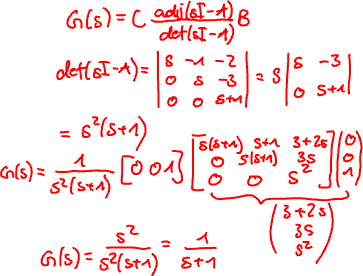 G(s) = C adj(sI-A)/det(sI-A) B
det(sI-A) = | s -1 -2 | = s | s -3 |
| 0 s -3 | | 0 s+1 |
| 0 0 s+1 |
= s²(s+1)
G(s) = 1/s²(s+1) [0 0 1] [ s(s+1) s+1 3+2s ] ( 0 )
[ 0 s(s+1) 3s ] ( 0 )
[ 0 0 s² ] ( 1 )
( 3+2s )
( 3s )
( s² )
G(s) = s²/s²(s+1) = 1/s+1